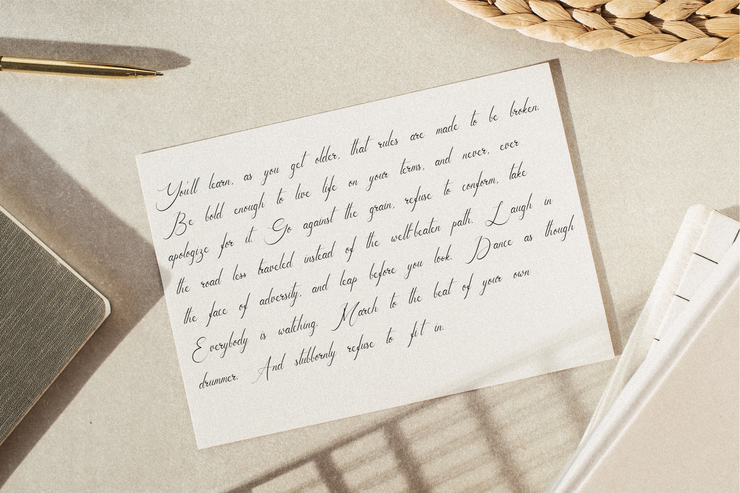 You'll learn, as you get older, that rules are made to be broken.
Be bold enough to live life on your terms, and never, ever
apologize for it. Go against the grain, refuse to conform, take
the road less traveled instead of the well-beaten path. Laugh in
the face of adversity, and leap before you look. Dance as though
Everybody is watching. March to the beat of your own
drummer. And stubbornly refuse to fit in.